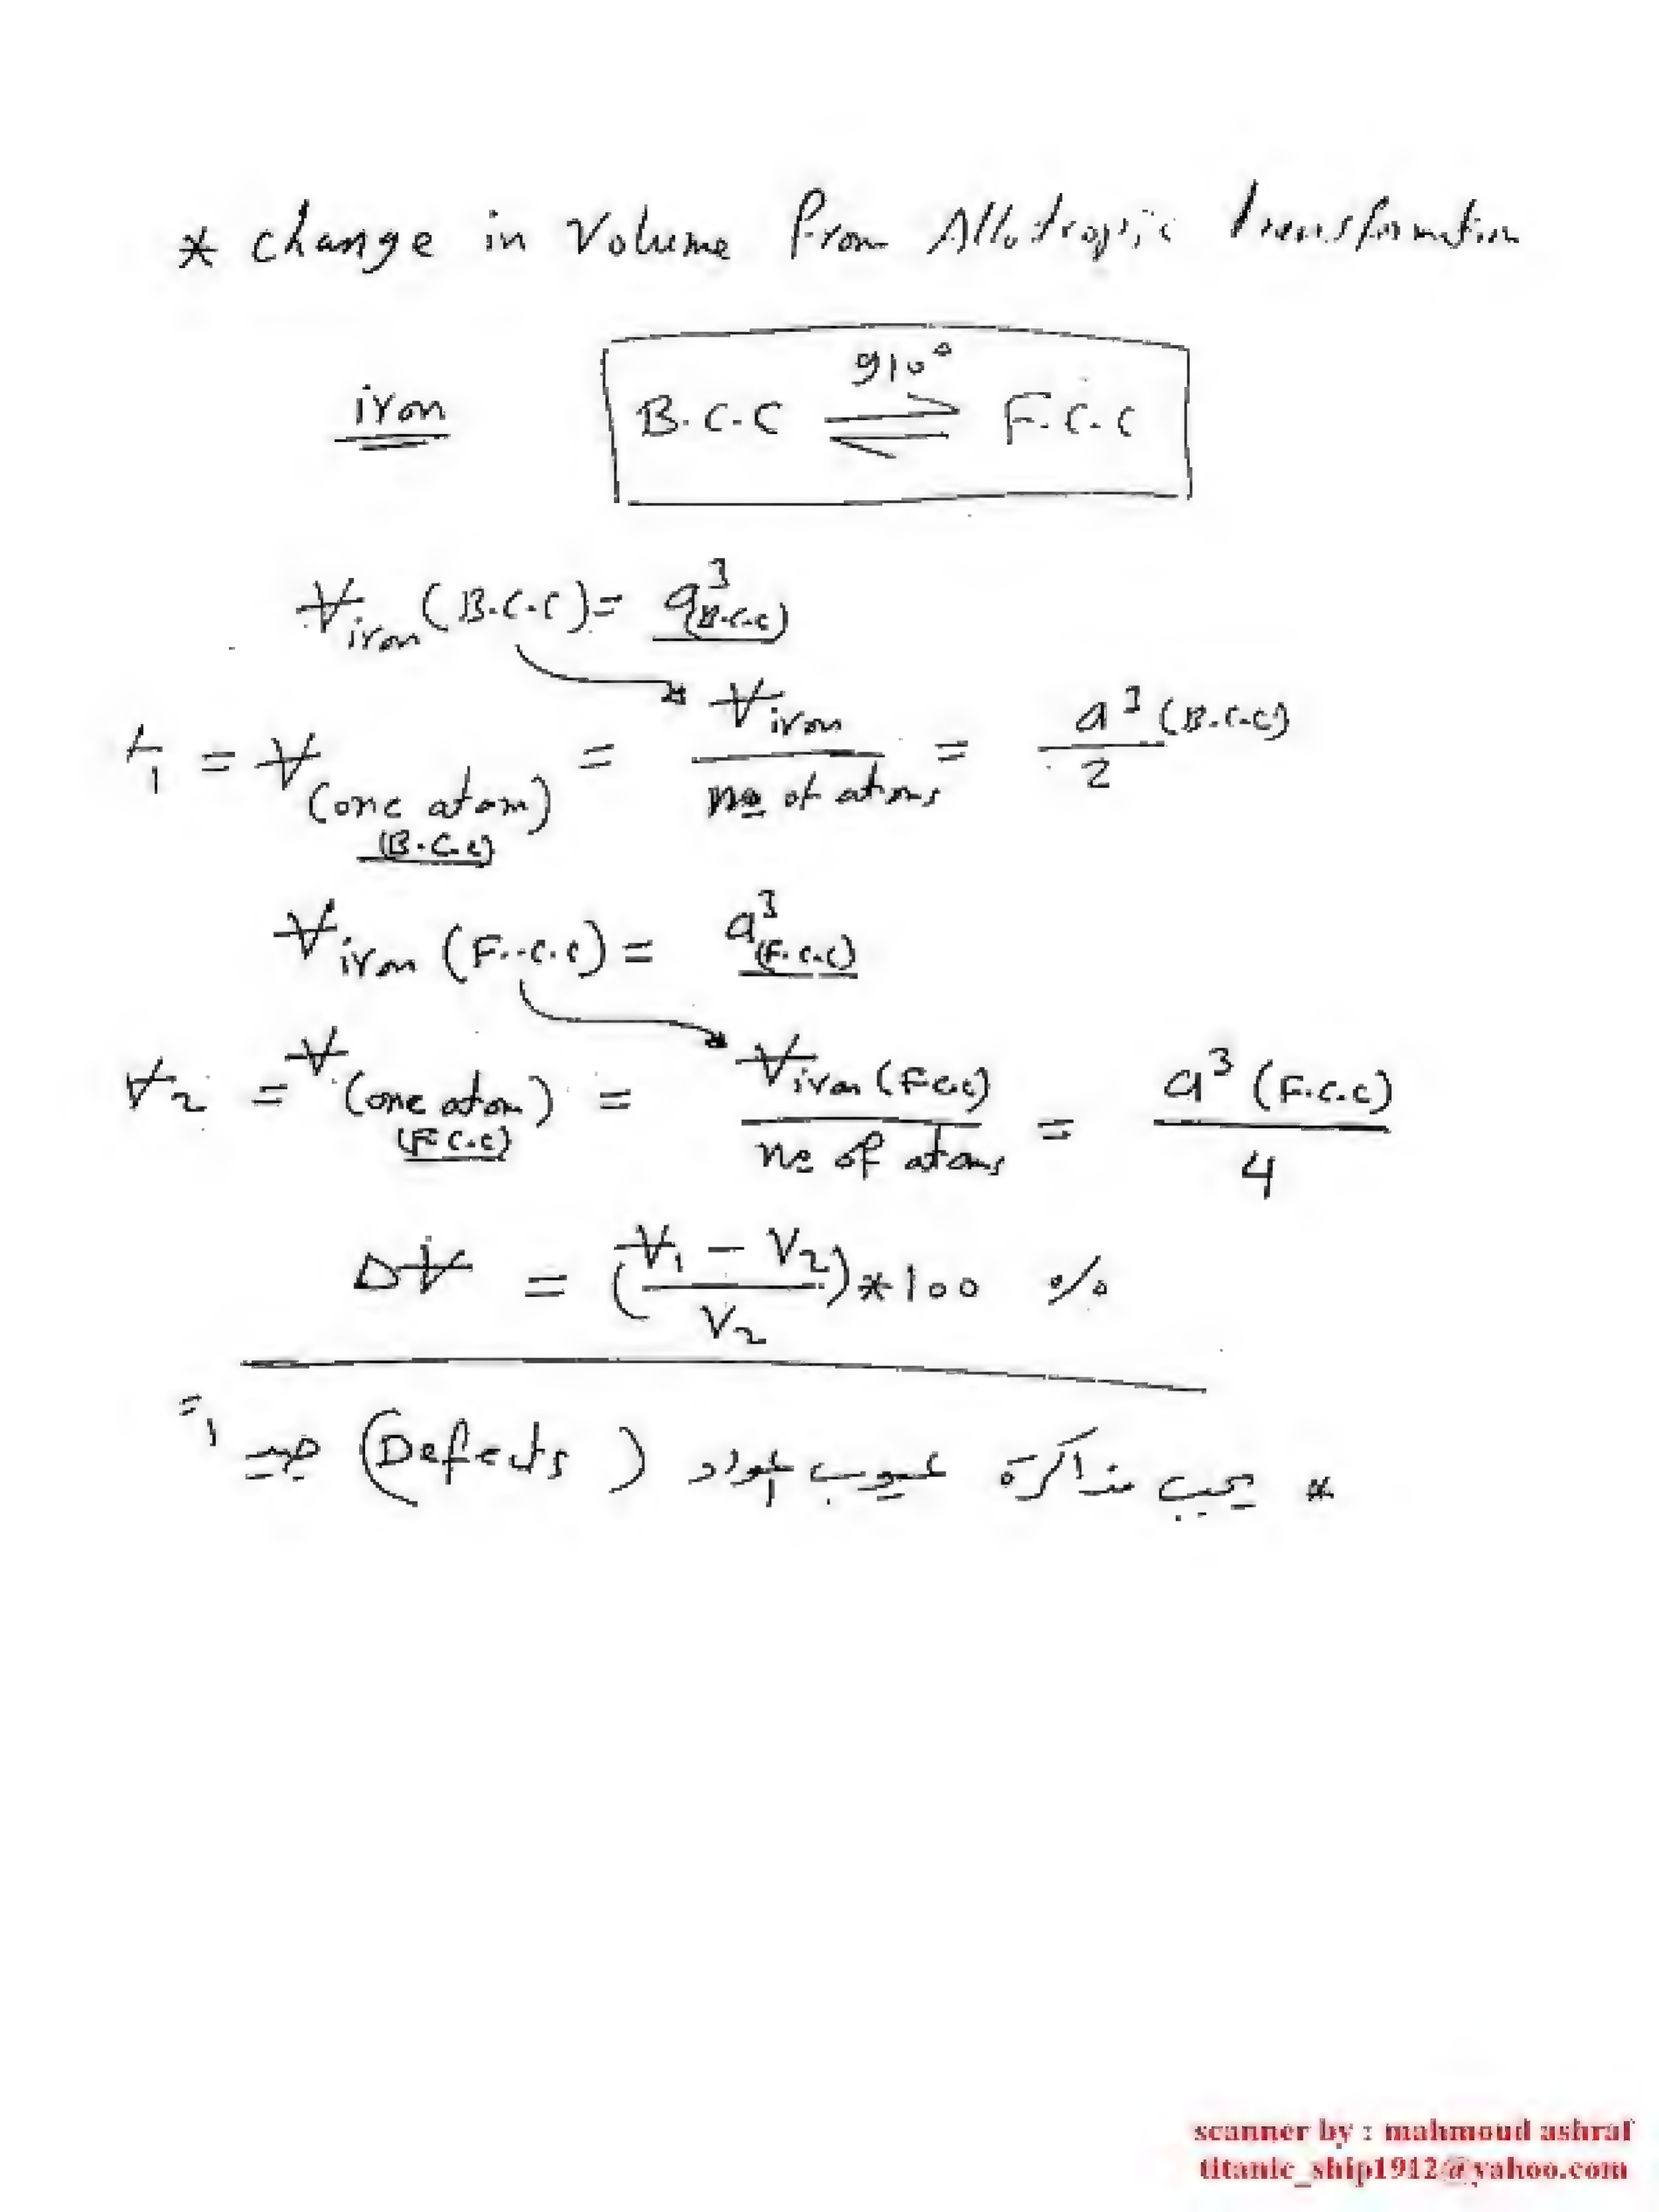 * change in Volume from Allotropic transformation
iron
910°
B.C.C ⇌ F.C.C
V iron (B.C.C) = a³ (B.C.C)
V₁ = V (one atom) (B.C.C) = V iron / no of atoms = a³ (B.C.C) / 2
V iron (F.C.C) = a³ (F.C.C)
V₂ = V (one atom) (F.C.C) = V iron (F.C.C) / no of atoms = a³ (F.C.C) / 4
ΔV = (V₁ - V₂ / V₂) * 100 %
* يجب مذاكرة عيوب المواد (Defects) جيداً
scanner by : mahmoud ashraf
titanic_ship1912@yahoo.com